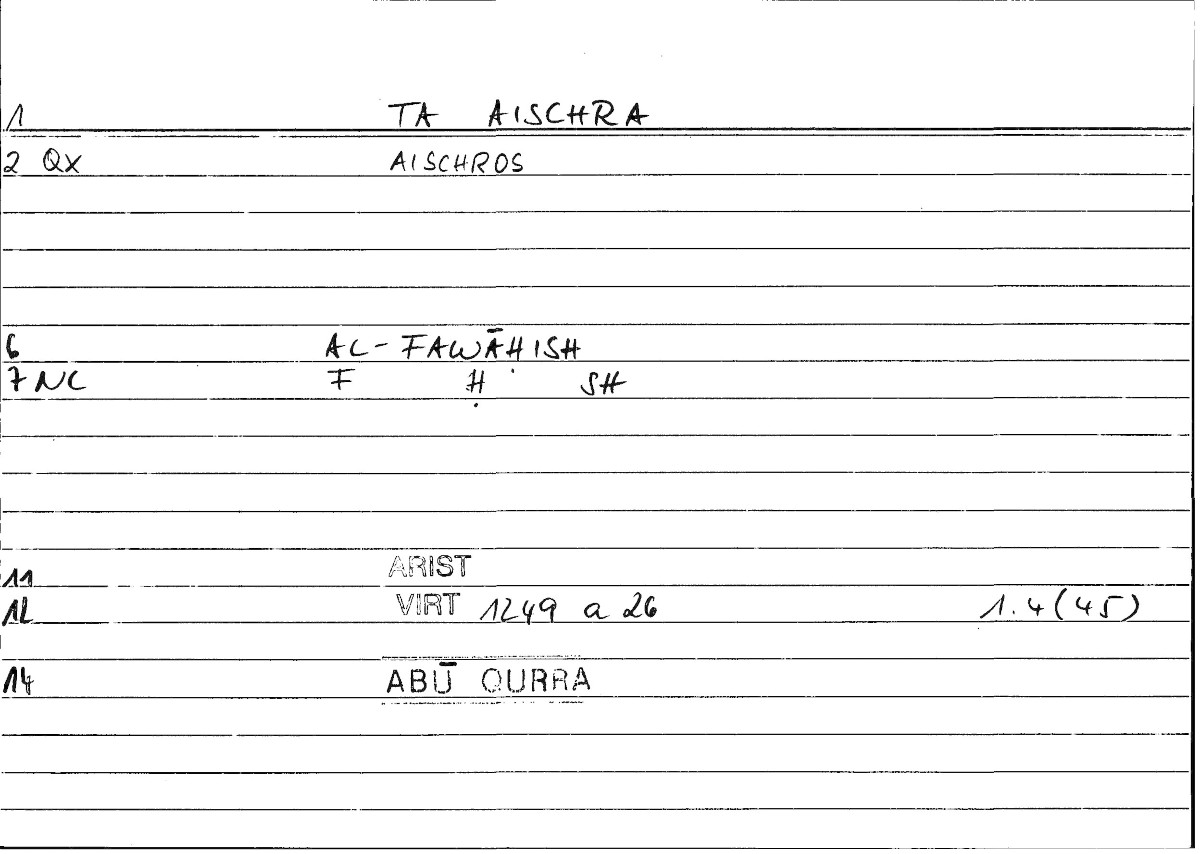 1 TA AISCHRA
2 QX AISCHROS
6 AL-FAWĀḤISH
7 NC F Ḥ SH
11 ARIST
12 VIRT 1249 a 26 1.4(45)
14 ABŪ QURRA